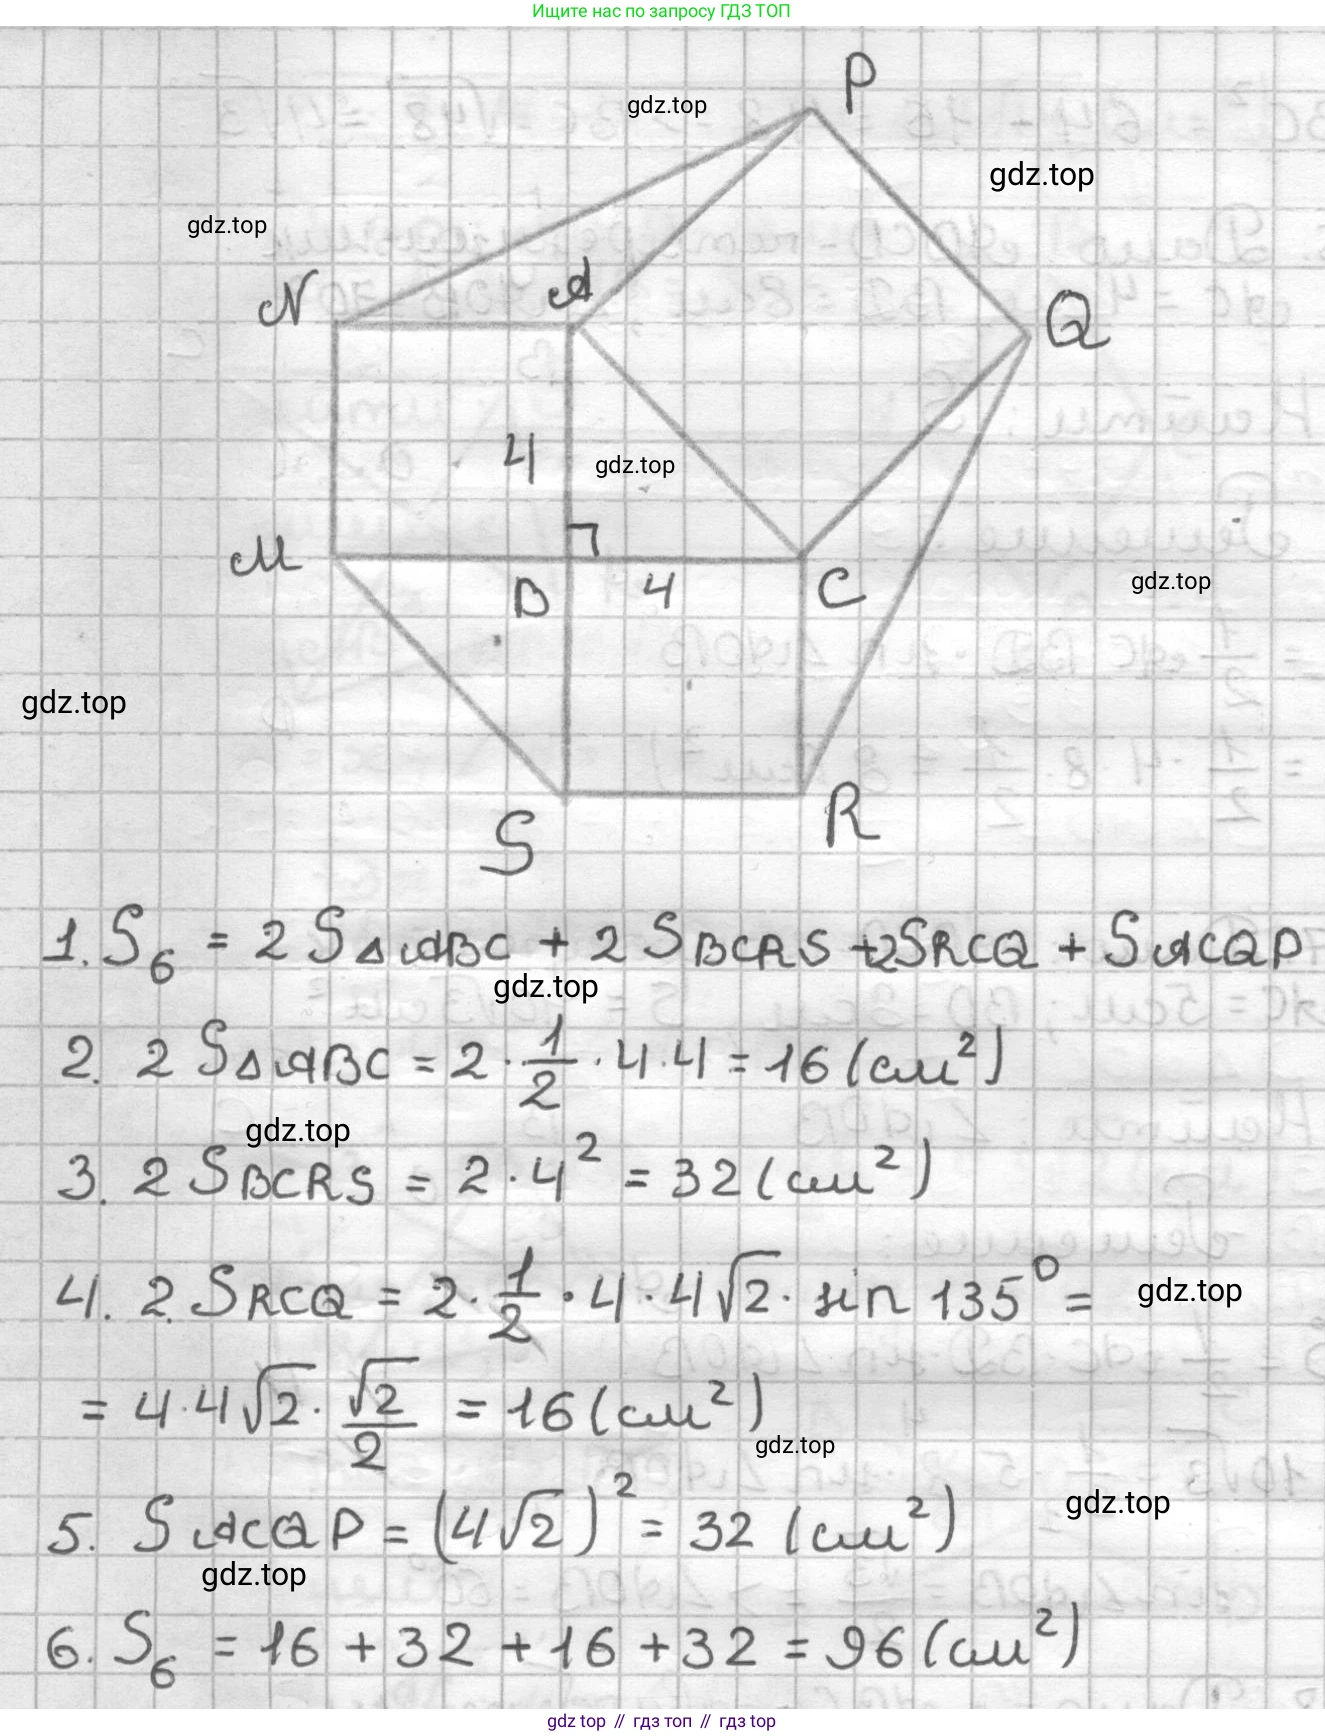 Ищите нас по запросу ГДЗ ТОП
P
gdz.top
gdz.top
gdz.top
N
A
Q
4
gdz.top
M
B
4
C
gdz.top
gdz.top
S
R
1. S₆ = 2 S△ABC + 2 SBCRS + 2SRCQ + SACQP
gdz.top
2. 2 S△ABC = 2 · 1/2 · 4 · 4 = 16 (см²)
gdz.top
3. 2 SBCRS = 2 · 4² = 32 (см²)
4. 2 SRCQ = 2 · 1/2 · 4 · 4√2 · sin 135° =
gdz.top
= 4 · 4√2 · √2/2 = 16 (см²)
gdz.top
gdz.top
5. SACQP = (4√2)² = 32 (см²)
gdz.top
6. S₆ = 16 + 32 + 16 + 32 = 96 (см²)
gdz top // гдз топ // gdz top